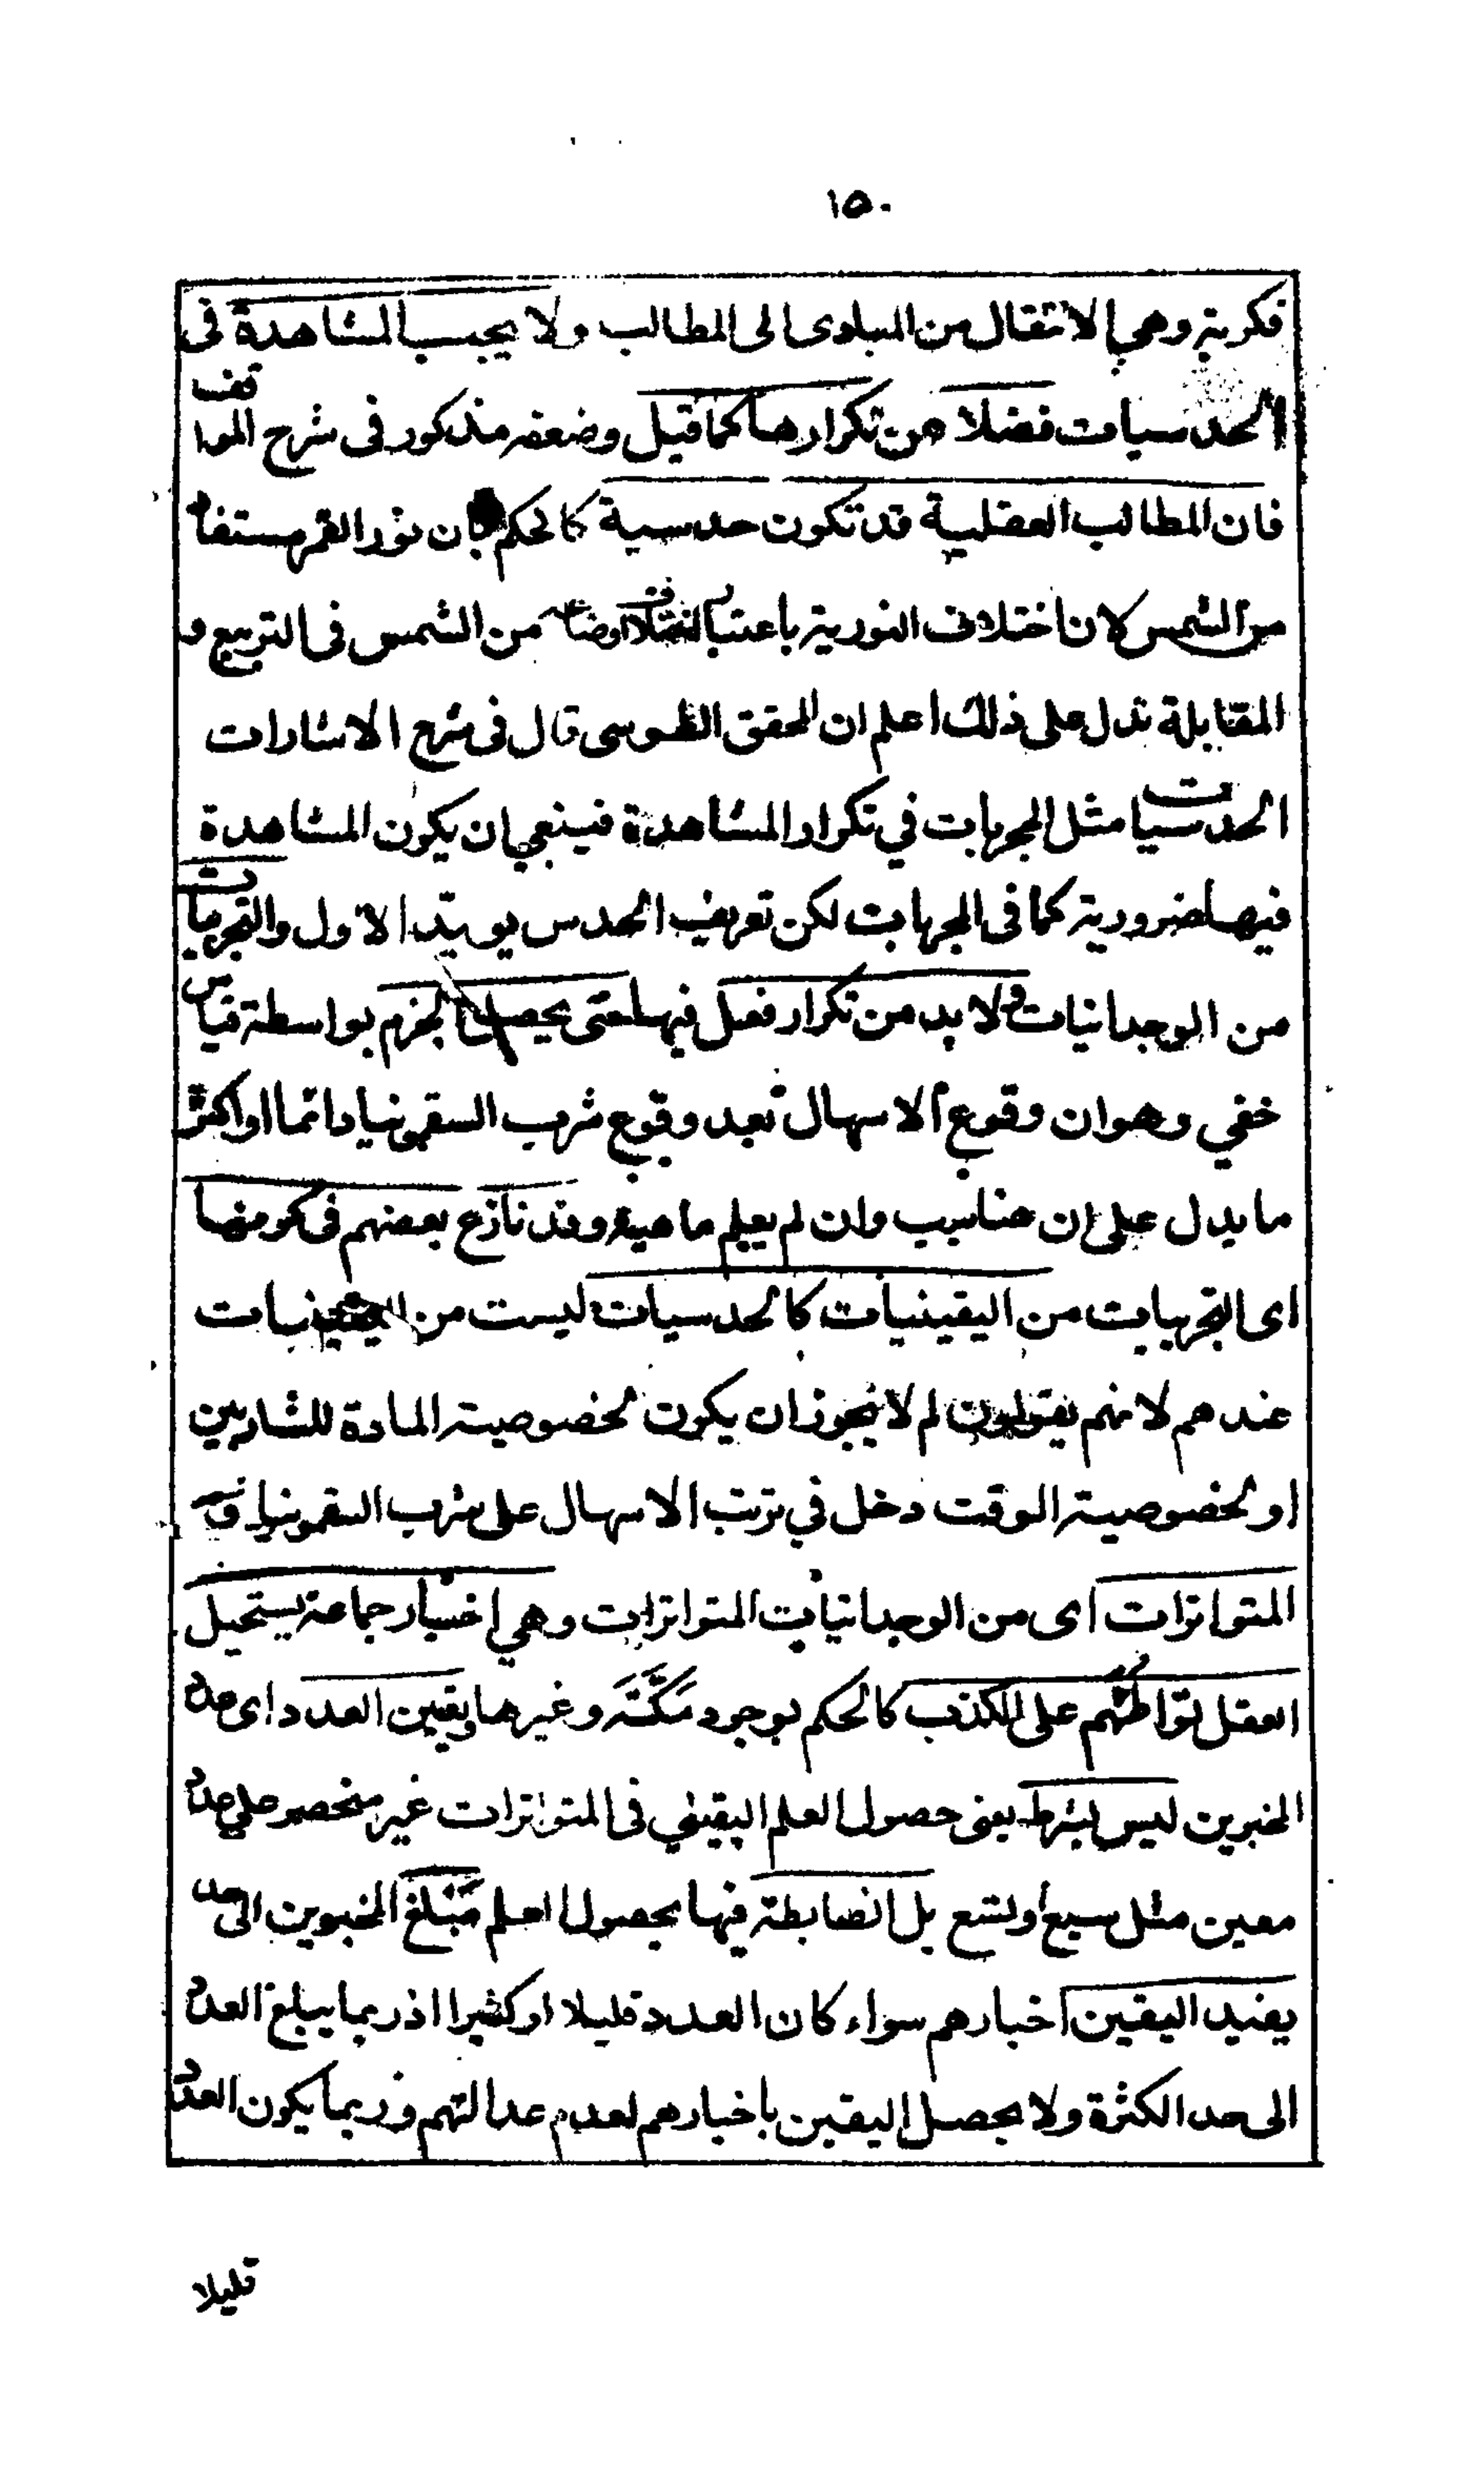 ١٥٠
فكرية وهي الانتقال من المبادى الى المطالب ولا يجب المشاهدة فى
الحدسيات فضلا عن تكرارها كما قيل وضعفه مذكور فى شرح المواقف
فان المطالب العقلية قد تكون حدسية كالحكم بان نور القمر مستفاد
من الشمس لان اختلاف النورية باعتبار اختلاف اوضاعه من الشمس فى التربيع و
المقابلة تدل على ذلك اعلم ان المحقق الطوسى قال فى شرح الاشارات
الحدسيات مثل المجربات في تكرار المشاهدة فينبغي ان يكون المشاهدة
فيها ضرورية كما فى المجربات لكن تعريف الحدس يويد الاول والتجربيات
من الوجدانيات ولا بد من تكرار فعل فيها حتى يحصل الجزم بواسطة قياس
خفي وهو ان وقوع الاسهال بعد وقوع شرب السقمونيا دائما او اكثر
ما يدل على ان هناسبب وان لم يعلم ماهيته وقد نازع بعضهم فى كونها
اى التجربيات من اليقينيات كالحدسيات ليست من اليقينيات
عندهم لانهم يقولون لم لا يجوز ان يكون لخصوصية المادة للشاربين
او لخصوصية الوقت دخل في ترتب الاسهال على شرب السقمونيا و
المتواترات اى من الوجدانيات المتواترات وهي اخبار جماعة يستحيل
العقل تواطئهم على الكذب كالحكم بوجود مَكَّتَه وغيرها وتعين العدد اى عدد
المخبرين ليس بشرط يعنى حصول العلم اليقيني فى المتواترات غير منحصر علي عدد
معين مثل سبع او تسع بل الضابطة فيها بحصول العلم مَبْلغ المخبرين الى حد
يفيد اليقين اخبارهم سواء كان العدد قليلا او كثيرا اذ ربما يبلغ العدد
الى حد الكثرة ولا يحصل اليقين باخبارهم لعدم عدالتهم وربما يكون العدد
قليلا